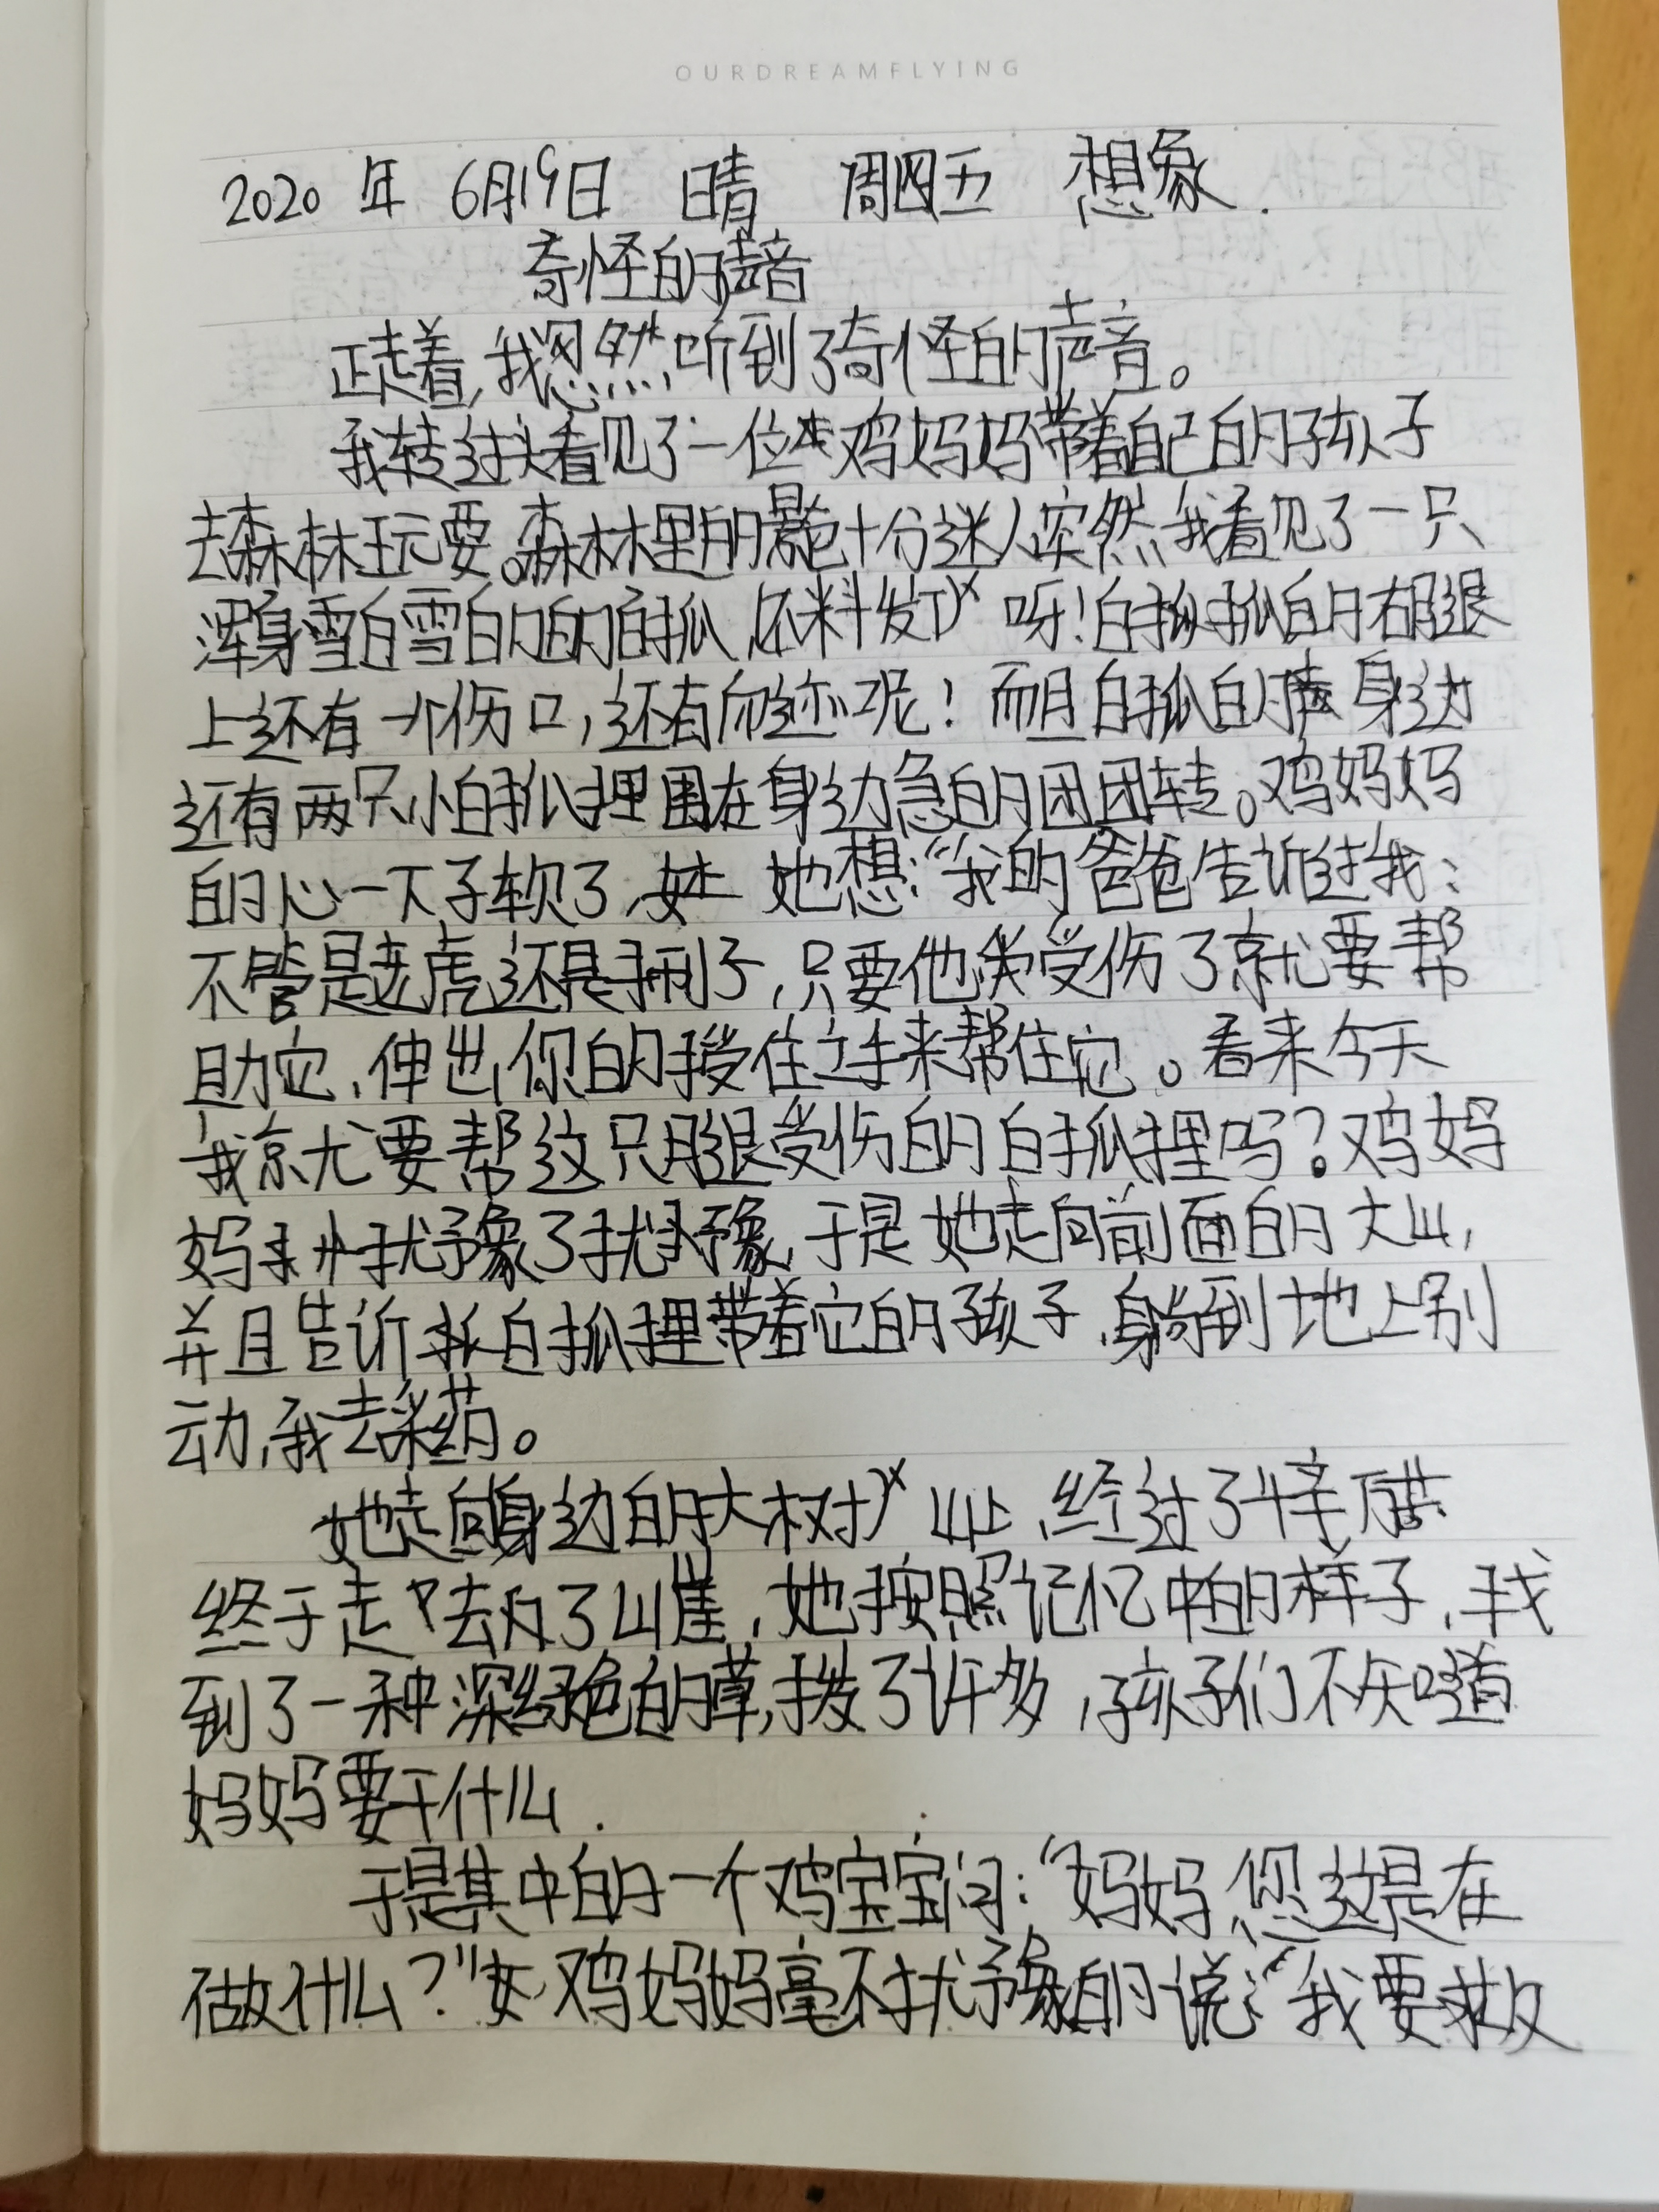 OURDREAMFLYING
2020 年 6月19日 晴 周五 想象.
奇怪的声音
正走着,我忽然听到了奇怪的声音。
我转过头看见了一位鸡妈妈带着自己的孩子
去森林玩耍。森林里的景色十分迷人突然我看见了一只
浑身雪白雪白的白狐,呀!白狐的右腿
上还有一个伤口,还有血迹呢!而且白狐的身边
还有两只小白狐狸围在身边急的团团转。鸡妈妈
的心一下子软了,她想:“我的爸爸告诉过我:
不管是老虎还是狮子,只要他受伤了就要帮
助它,伸出你的援助之手来帮住它。看来今天
我就要帮这只腿受伤的白狐狸吗?鸡妈
妈犹豫了犹豫,于是她走向前面的大山,
并且告诉白狐狸带着它的孩子,躺到地上别
动,我去采药。
她走向身边的大山上,经过了千辛万苦
终于走去了山崖,她按照记忆中的样子,找
到了一种深绿色的草,拨了许多,孩子们不知道
妈妈要干什么.
于是其中的一个鸡宝宝问:“妈妈,您这是在
做什么?”鸡妈妈毫不犹豫的说:“我要救